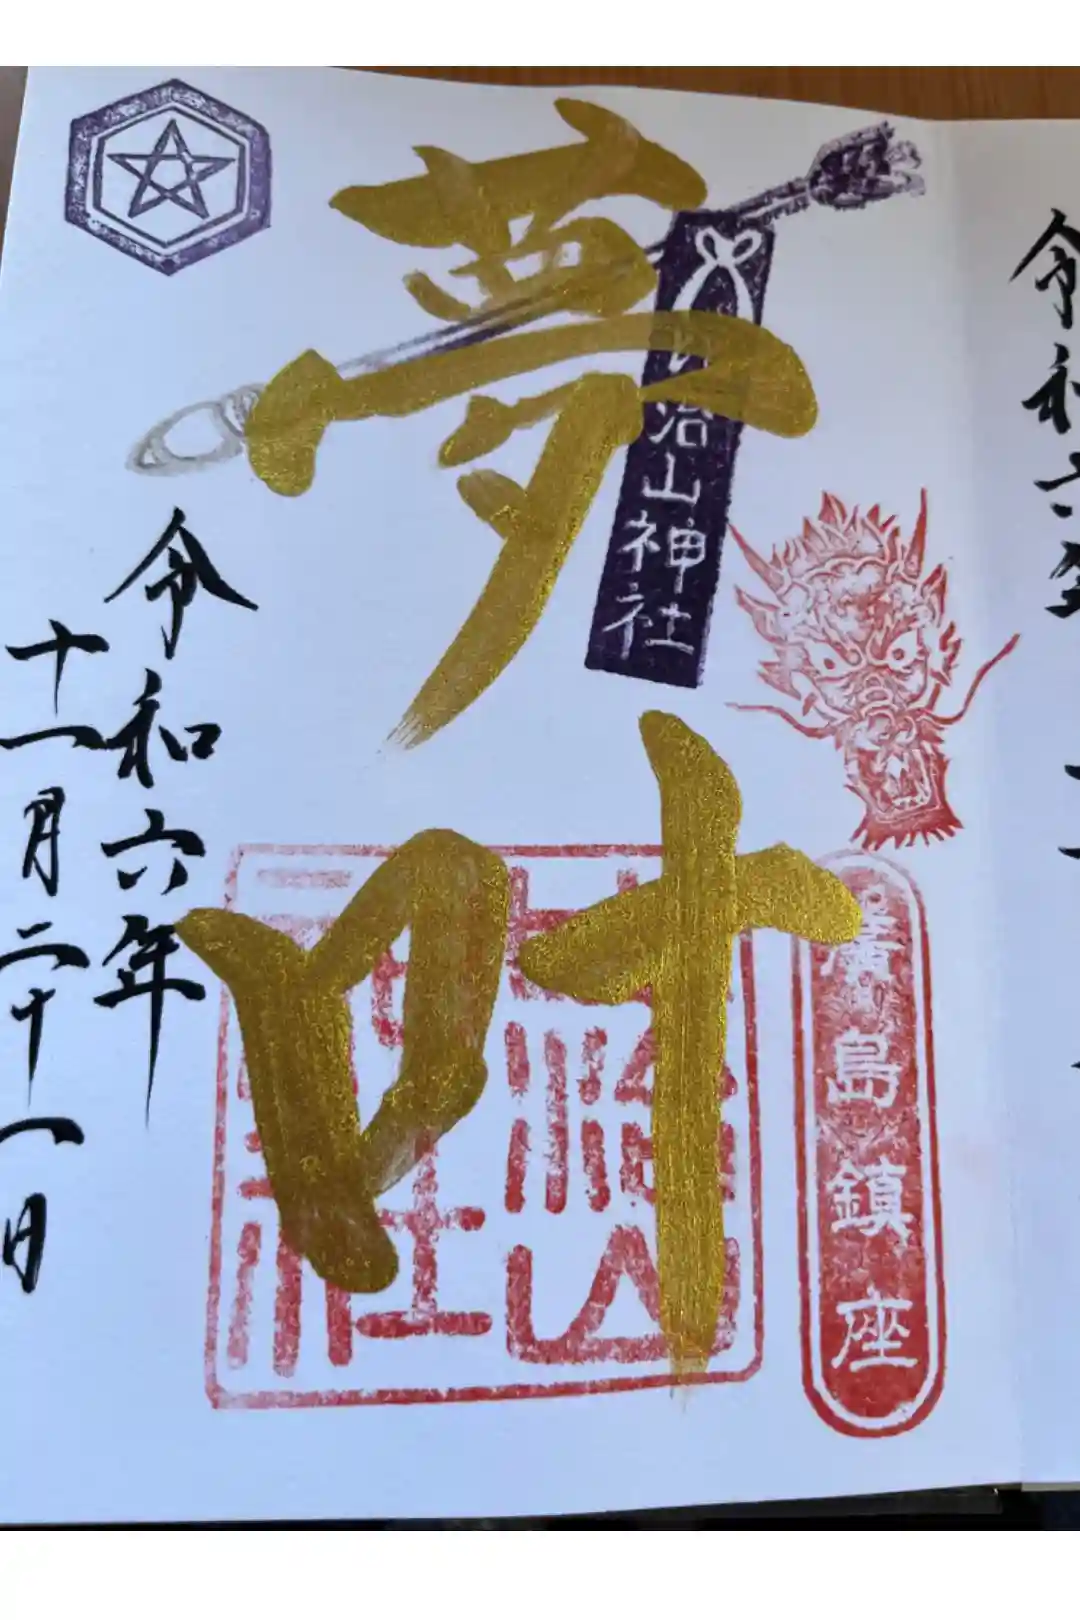 令和六年
廣島鎮座
比治山神社
夢叶
令和六年
十一月二十一日